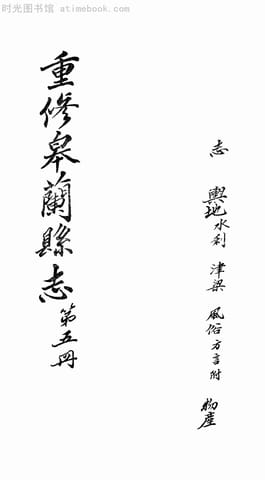 时光图书馆 - atimebook.com
志 輿地 水利 津梁 風俗 方言附 物產
重修皋蘭縣志 第五冊